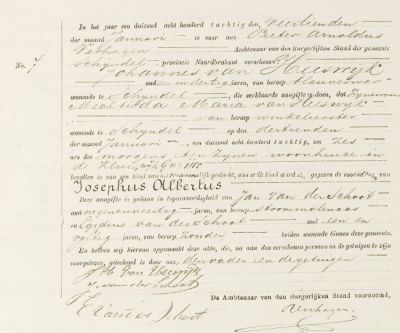 In het jaar een duizend acht honderd tachtig den veertienden
der maand Januari is voor ons Pieter Arnoldus
Verhagen Ambtenaar van den Burgerlijken Stand der gemeente
Schyndel, provincie Noordbrabant verschenen:
No. 7
Johannes van Heeswyk
oud en dertig jaren, van beroep
wonende te Schyndel, die verklaarde aangifte te doen, dat
Mechtilda Maria van Heeswyk
van beroep winkelierster
wonende te Schyndel op den dertienden
der maand Januari, van duizend achthonderd tachtig, om zes
ure des morgens ten zynen woonhuize in
bevallen is van een kind van mannelijk geslacht, aan welk kind is gegeven de voornamen
Josephus Albertus
Deze aangifte is gedaan in tegenwoordigheid van Jan van der Schoot
oud negenenveertig jaren, van beroep stoommolenaar
en Egidius van der Schoot oud een en
veertig jaren, van beroep zonder beiden wonende binnen deze gemeente.
En hebben wij hiervan opgemaakt deze akte, die, na aan den verschenen persoon en de getuigen te zijn
voorgelezen, geteekend is door ons, den vader en de getuigen
van Heeswyk
J. van der Schoot
De Ambtenaar van den Burgerlijken Stand voornoemd,
E. van der Schoot
Verhagen